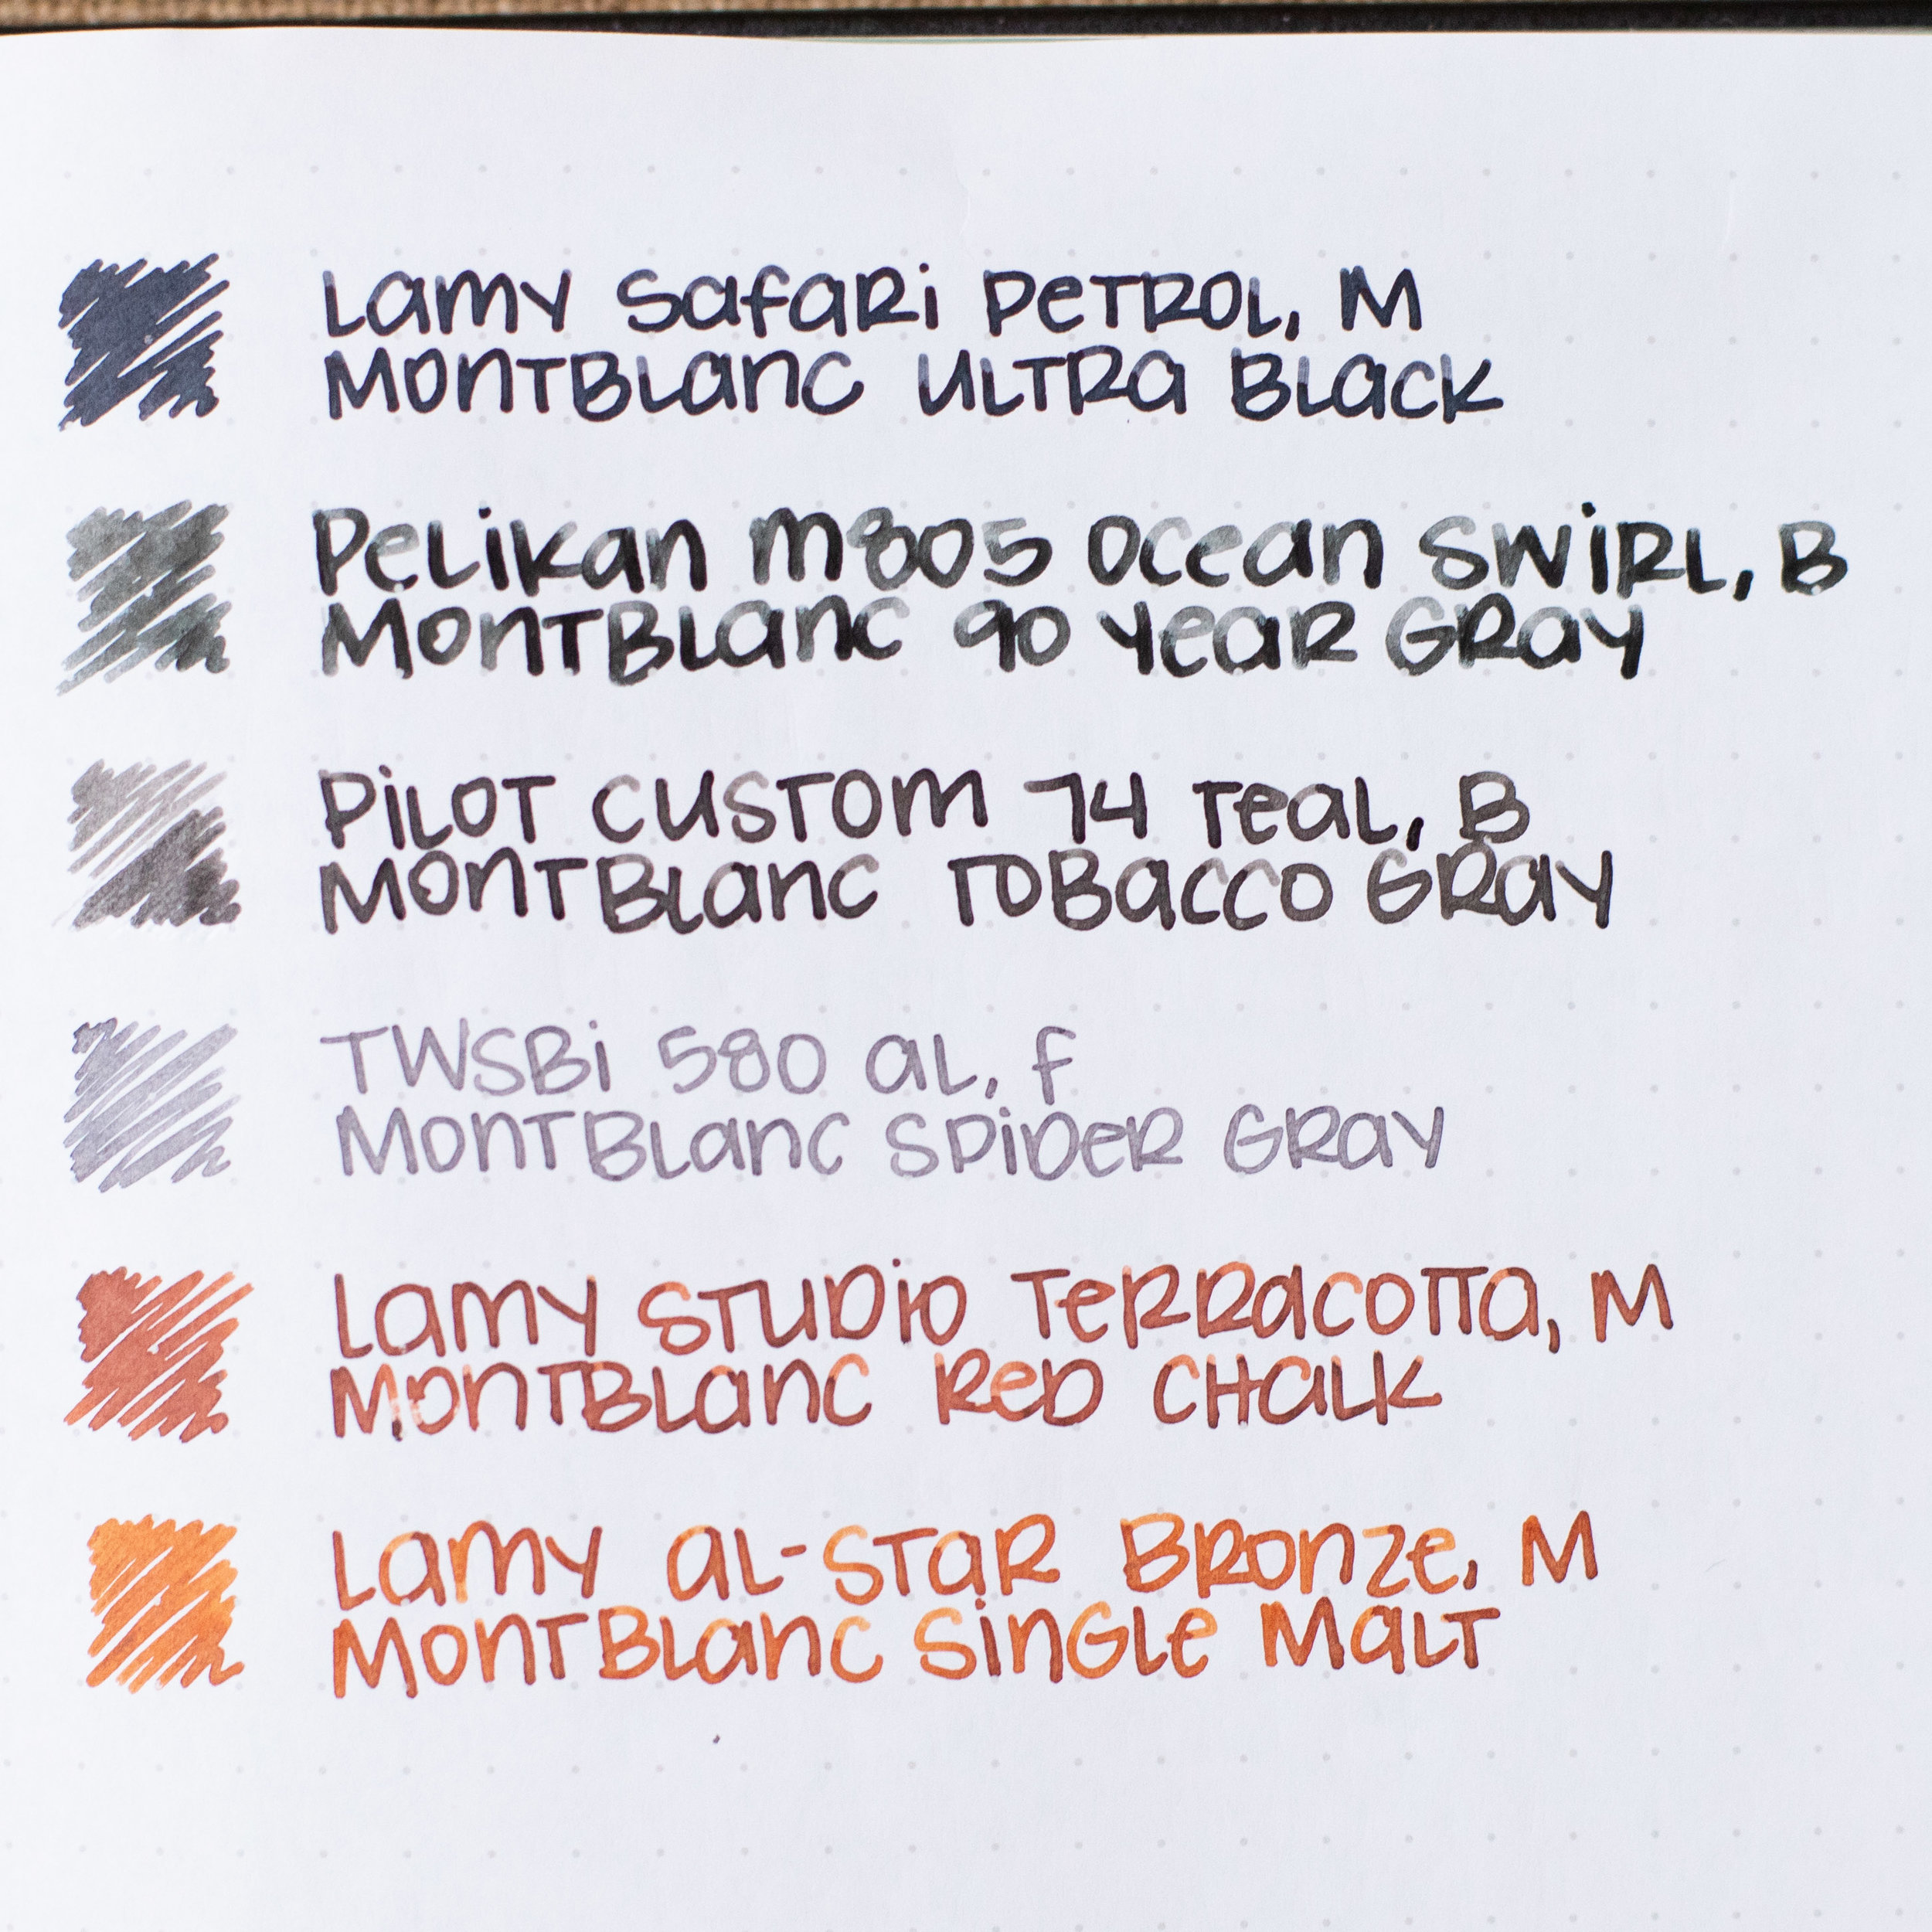 Lamy Safari Petrol, M
MontBlanc Ultra Black
Pelikan M805 Ocean Swirl, B
MontBlanc 90 Year Gray
Pilot Custom 74 Teal, B
MontBlanc Tobacco Gray
TWSBi 580 AL, F
MontBlanc Spider Gray
Lamy Studio Terracotta, M
MontBlanc Red Chalk
Lamy Al-Star Bronze, M
MontBlanc Single Malt